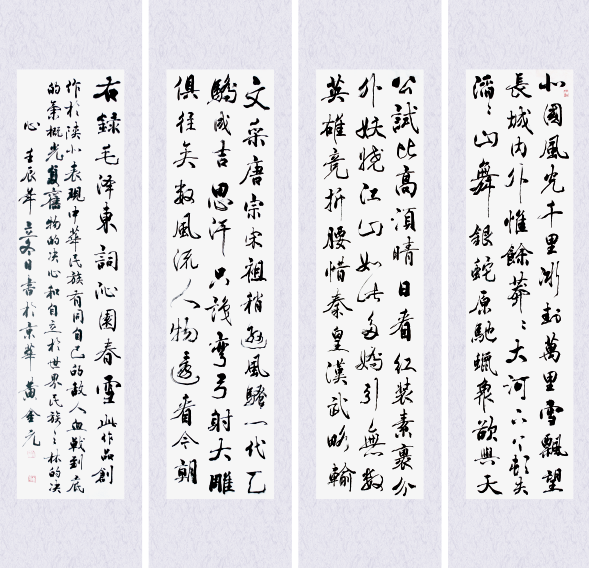 北國風光千里冰封萬里雪飄望
長城內外惟餘莽莽大河上下頓失
滔滔山舞銀蛇原馳蠟象欲與天
公試比高須晴日看紅裝素裹分
外妖嬈江山如此多嬌引無數
英雄競折腰惜秦皇漢武略輸
文采唐宗宋祖稍遜風騷一代天
驕成吉思汗只識彎弓射大雕
俱往矣數風流人物還看今朝
右錄毛澤東詞沁園春雪此作品創
作於陝北表現中華民族有同自己的敵人血戰到底
的氣概光復舊物的決心和自立於世界民族之林的決
心壬辰年立冬日書於京華黃金元